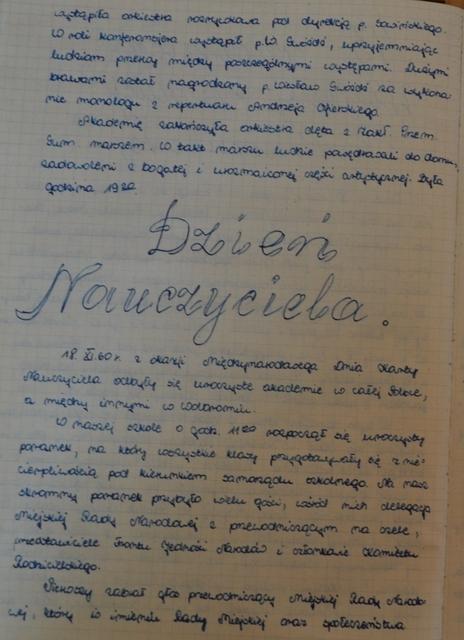 wystąpiła orkiestra rozrywkowa pod dyrekcją p.
W roli konferansjera wystąpił p. W. uprzyjemniając
ludziom przerwy między poszczególnymi występami. Dużymi
brawami został nagrodzony p. Wiesław za wykona
nie monologu z repertuaru Andrzeja
Akademię zakończyła orkiestra dęta z Zakł. Przem.
marszem. W takt marszu ludzie powędrowali do domu,
zadowoleni z bogatej i urozmaiconej części artystycznej. Była
godzina 19
Dzień
Nauczyciela.
18. XI. 60 r. z okazji Międzynarodowego Dnia Karty
Nauczyciela odbyły się uroczyste akademie w całej Polsce,
a między innymi w
W naszej szkole o godz. 11 rozpoczął się uroczysty
poranek, na który wszystkie klasy przygotowywały się z nie-
cierpliwością pod kierunkiem samorządu szkolnego. Na nasz
skromny poranek przybyło wielu gości, wśród nich delegacja
Miejskiej Rady Narodowej z przewodniczącym na czele,
przedstawiciele Frontu Jedności Narodów i członkowie Komitetu
Rodzicielskiego.
Pierwszy zabrał głos przewodniczący Miejskiej Rady Narodo
wej, który w imieniu Rady Miejskiej oraz społeczeństwa